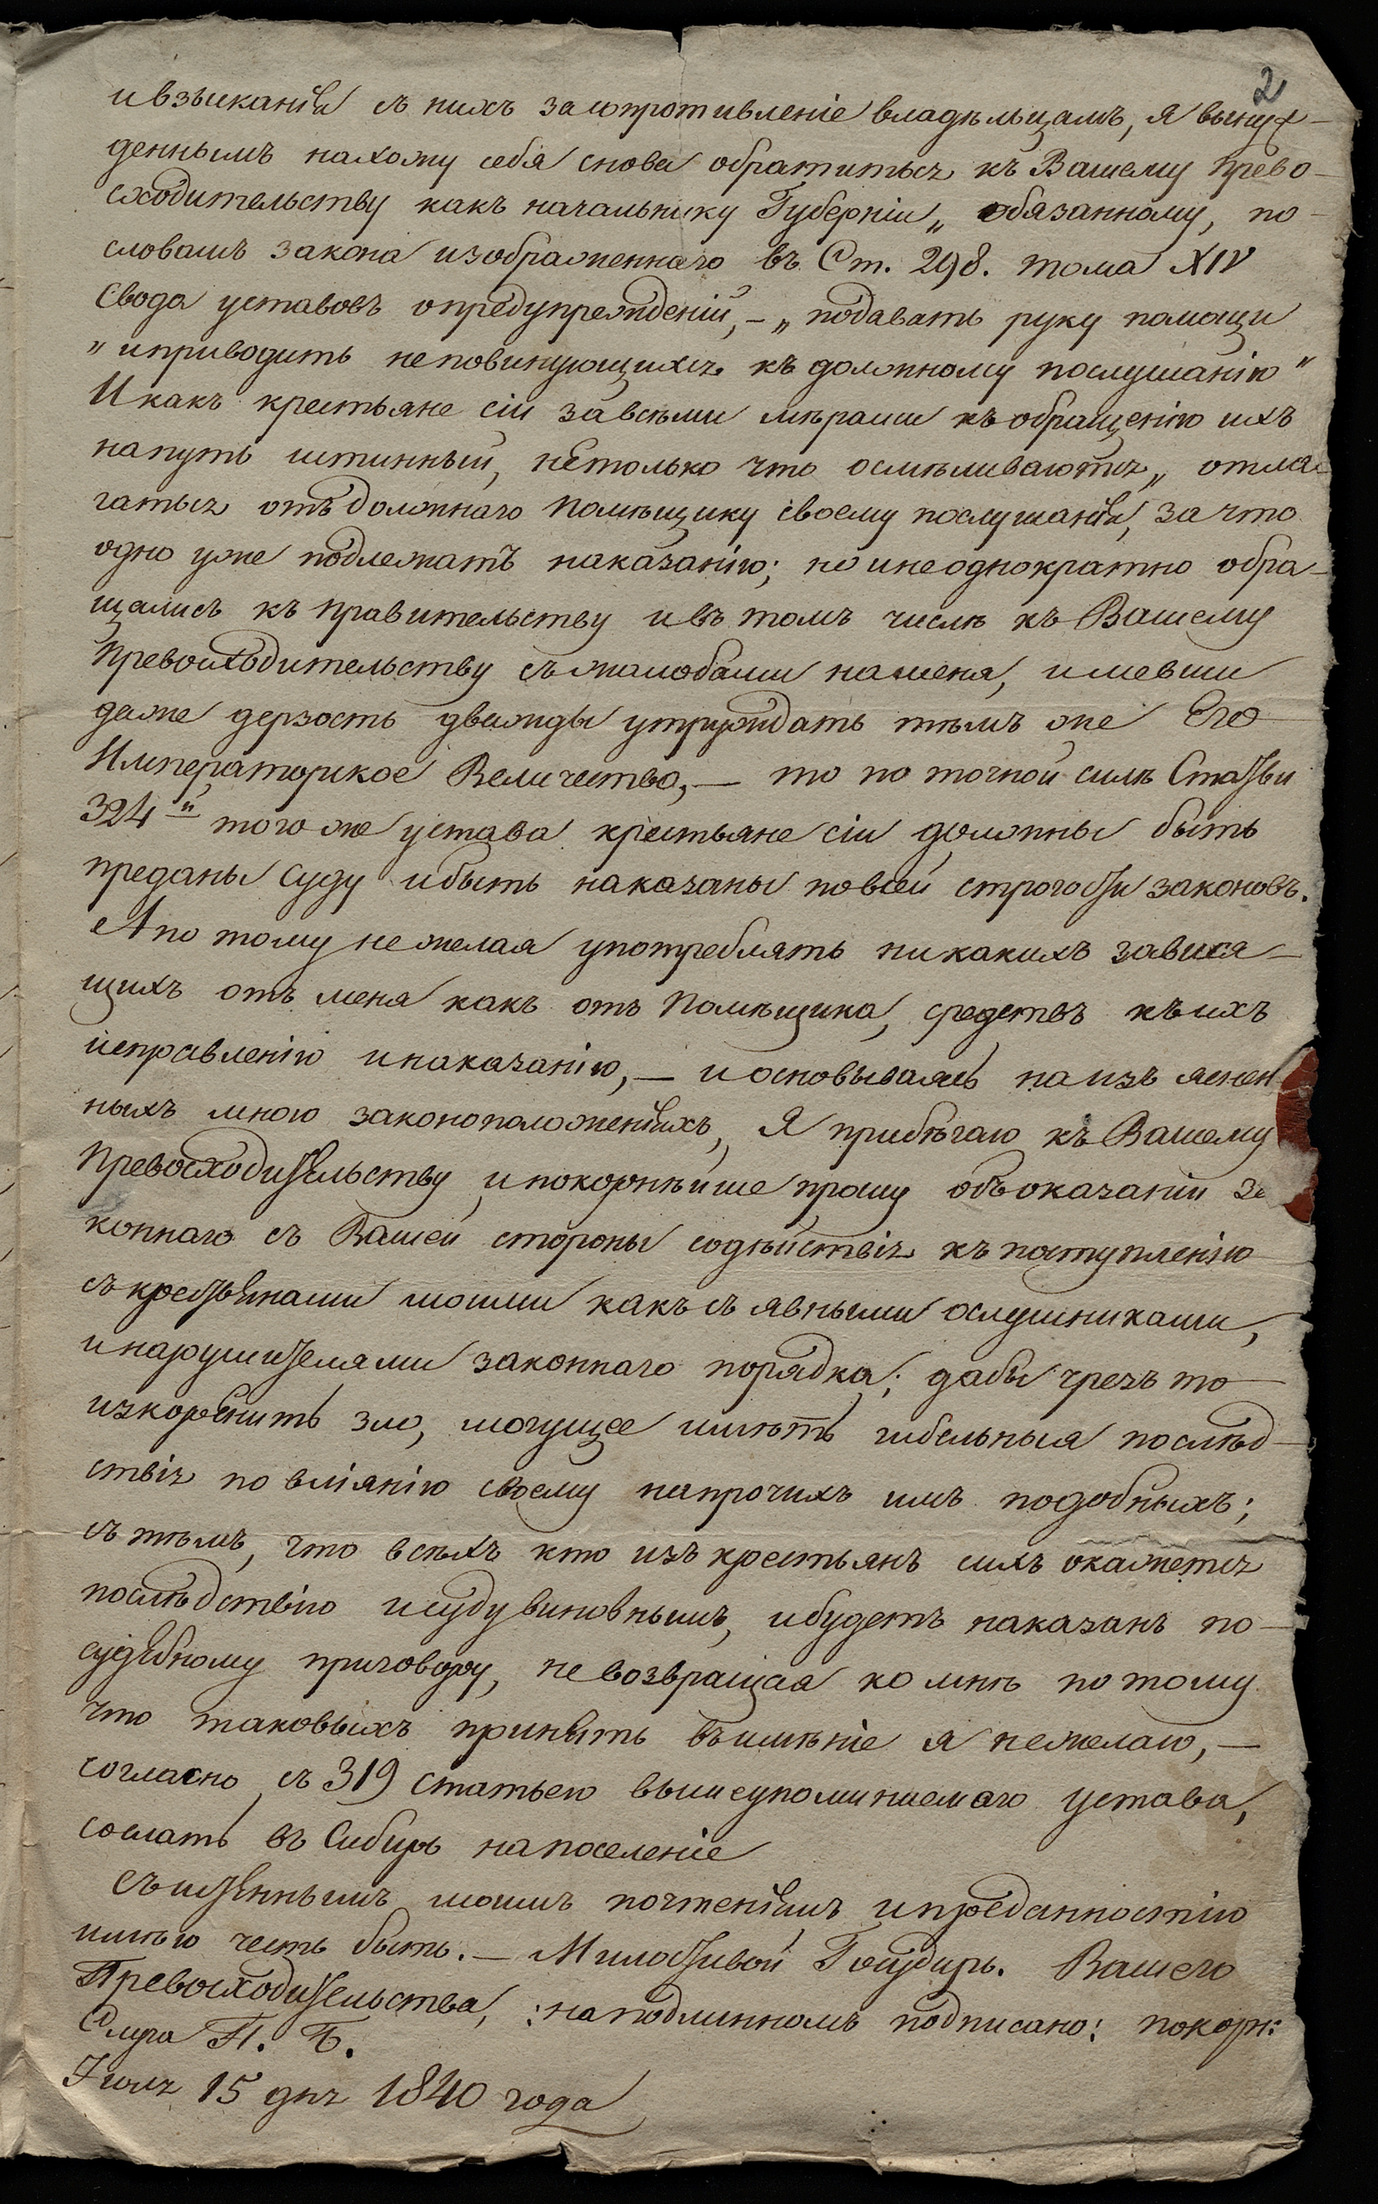 2
и взысканія съ нихъ за сопротивленіе владѣльцамъ, я вынуж-
деннымъ нахожу себя снова обратиться къ Вашему Прево-
сходительству какъ начальнику Губерніи „ обязанному, по-
словамъ закона изображеннаго въ Ст. 298. тома XIV
Свода уставовъ о предупрежденіи, – „ подавать руку помощи
„ и приводить неповинующихся къ должному послушанію "
И какъ крестьяне сіи за всѣми мѣрами къ обращенію ихъ
на путь истинный, нетолько что осмѣливаются „ отла-
гаться отъ должнаго Помѣщику своему послушанія, за что
одно уже подлежатъ наказанію; но и неоднократно обра-
щались къ правительству и въ томъ числѣ къ Вашему
Превосходительству съ жалобами на меня, имевши
даже дерзость дважды утруждать тѣмъ же Его
Императорское Величество, – то по точной силѣ Статьи
324й того же устава крестьяне сіи должны быть
преданы суду и быть наказаны по всей строгости законовъ.
А по тому не желая употреблять никакихъ завися-
щихъ отъ меня какъ отъ Помѣщика, средствъ къ ихъ
исправленію и наказанію, – и основываясь на изъяснен-
ныхъ мною законоположеніяхъ, Я прибѣгаю къ Вашему
Превосходительству и покорнѣйше прошу объ оказаніи за
коннаго съ Вашей стороны содѣйствія къ поступленію
съ крестьянами моими какъ съ явными ослушниками,
и нарушителями законнаго порядка; дабы чрезъ то
изкоренить зло, могущее имѣть гибельныя послѣд-
ствія по вліянію своему на прочихъ имъ подобныхъ;
съ тѣмъ, что всѣхъ кто изъ крестьянъ сихъ окажется
послѣдствію и суду виновнымъ, и будетъ наказанъ по-
судебному приговору, не возвращая ко мнѣ по тому
что таковыхъ принять въ имѣніе я не желаю, –
согласно съ 319 статьею вышеупоминаемаго устава,
сослать въ Сибирь на поселеніе
Съ истиннымъ моимъ почтеніемъ и преданностію
имѣю честь быть. – Милостивой Государь. Вашего
Превосходительства, : на подлинномъ подписано: покорн:
Слуга П. Б.
Іюля 15 дня 1840 года